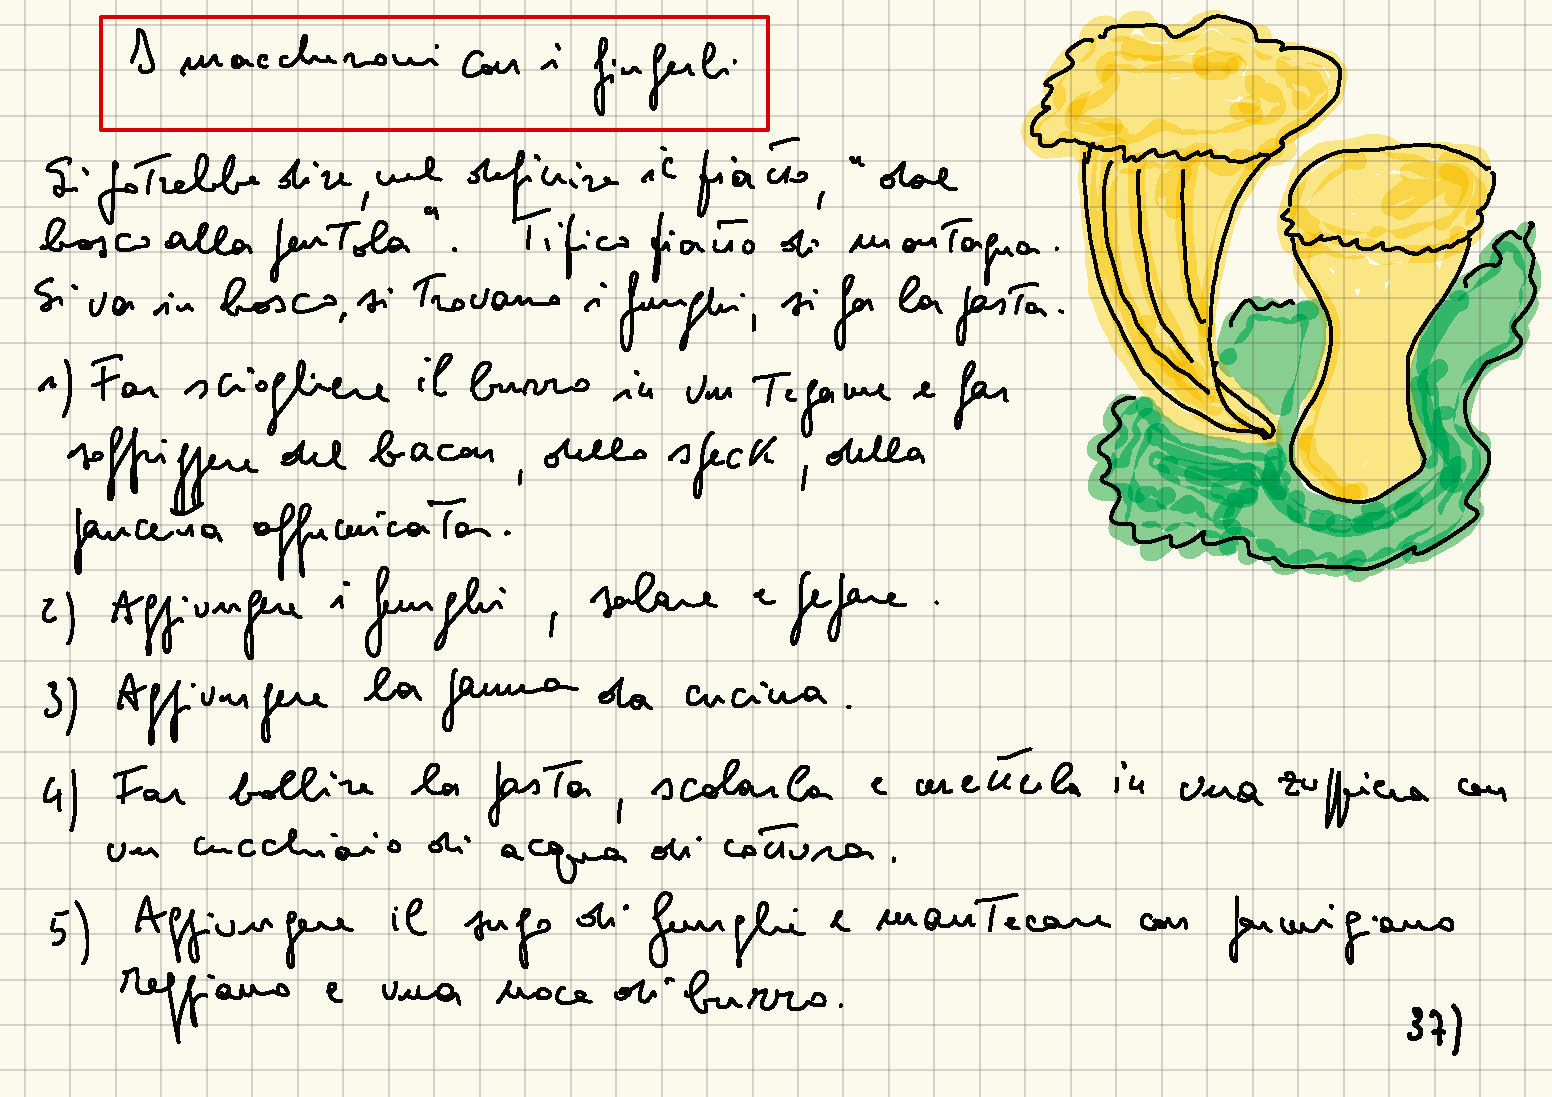 I maccheroni con i finferli
Si potrebbe dire, nel definire il piatto, "dal
bosco alla pentola". Tipico piatto di montagna.
Si va in bosco, si trovano i funghi, si fa la pasta.
1) Far sciogliere il burro in un tegame e far
soffriggere del bacon, dello speck, della
pancetta affumicata.
2) Aggiungere i funghi, salare e pepare.
3) Aggiungere la panna da cucina.
4) Far bollire la pasta, scolarla e metterla in una zuppiera con
un cucchiaio di acqua di cottura.
5) Aggiungere il sugo di funghi e mantecare con parmigiano
reggiano e una noce di burro.
37)